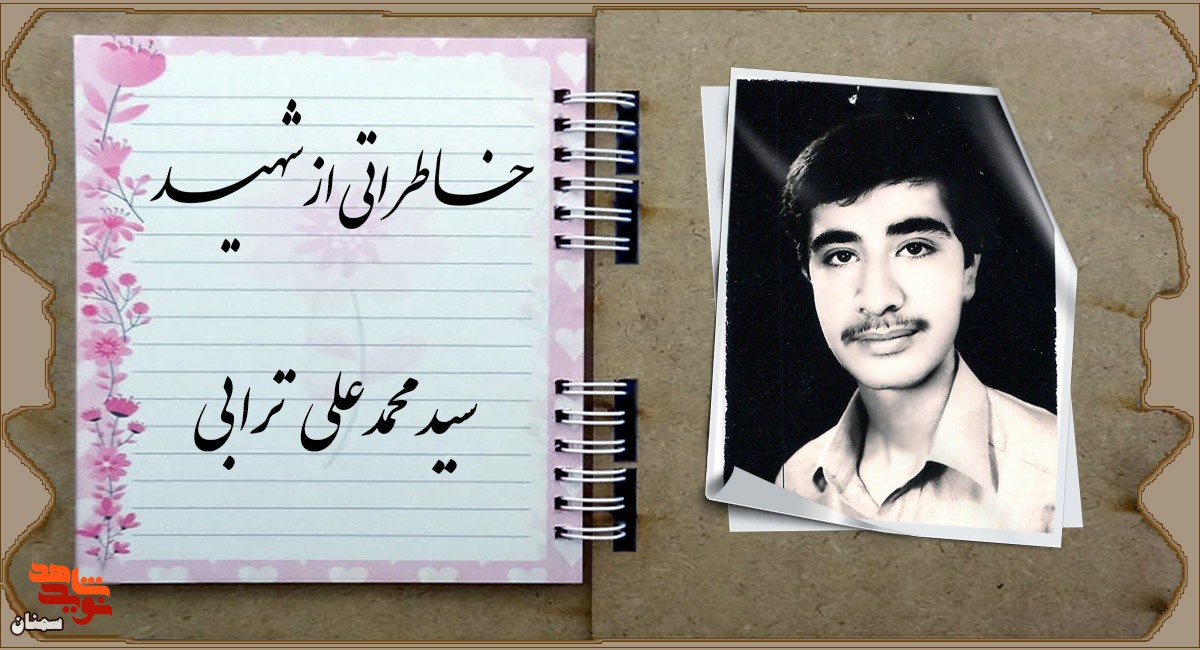 خاطراتی از شهید
سید محمد علی ترابی
نوید شاهد
سمنان